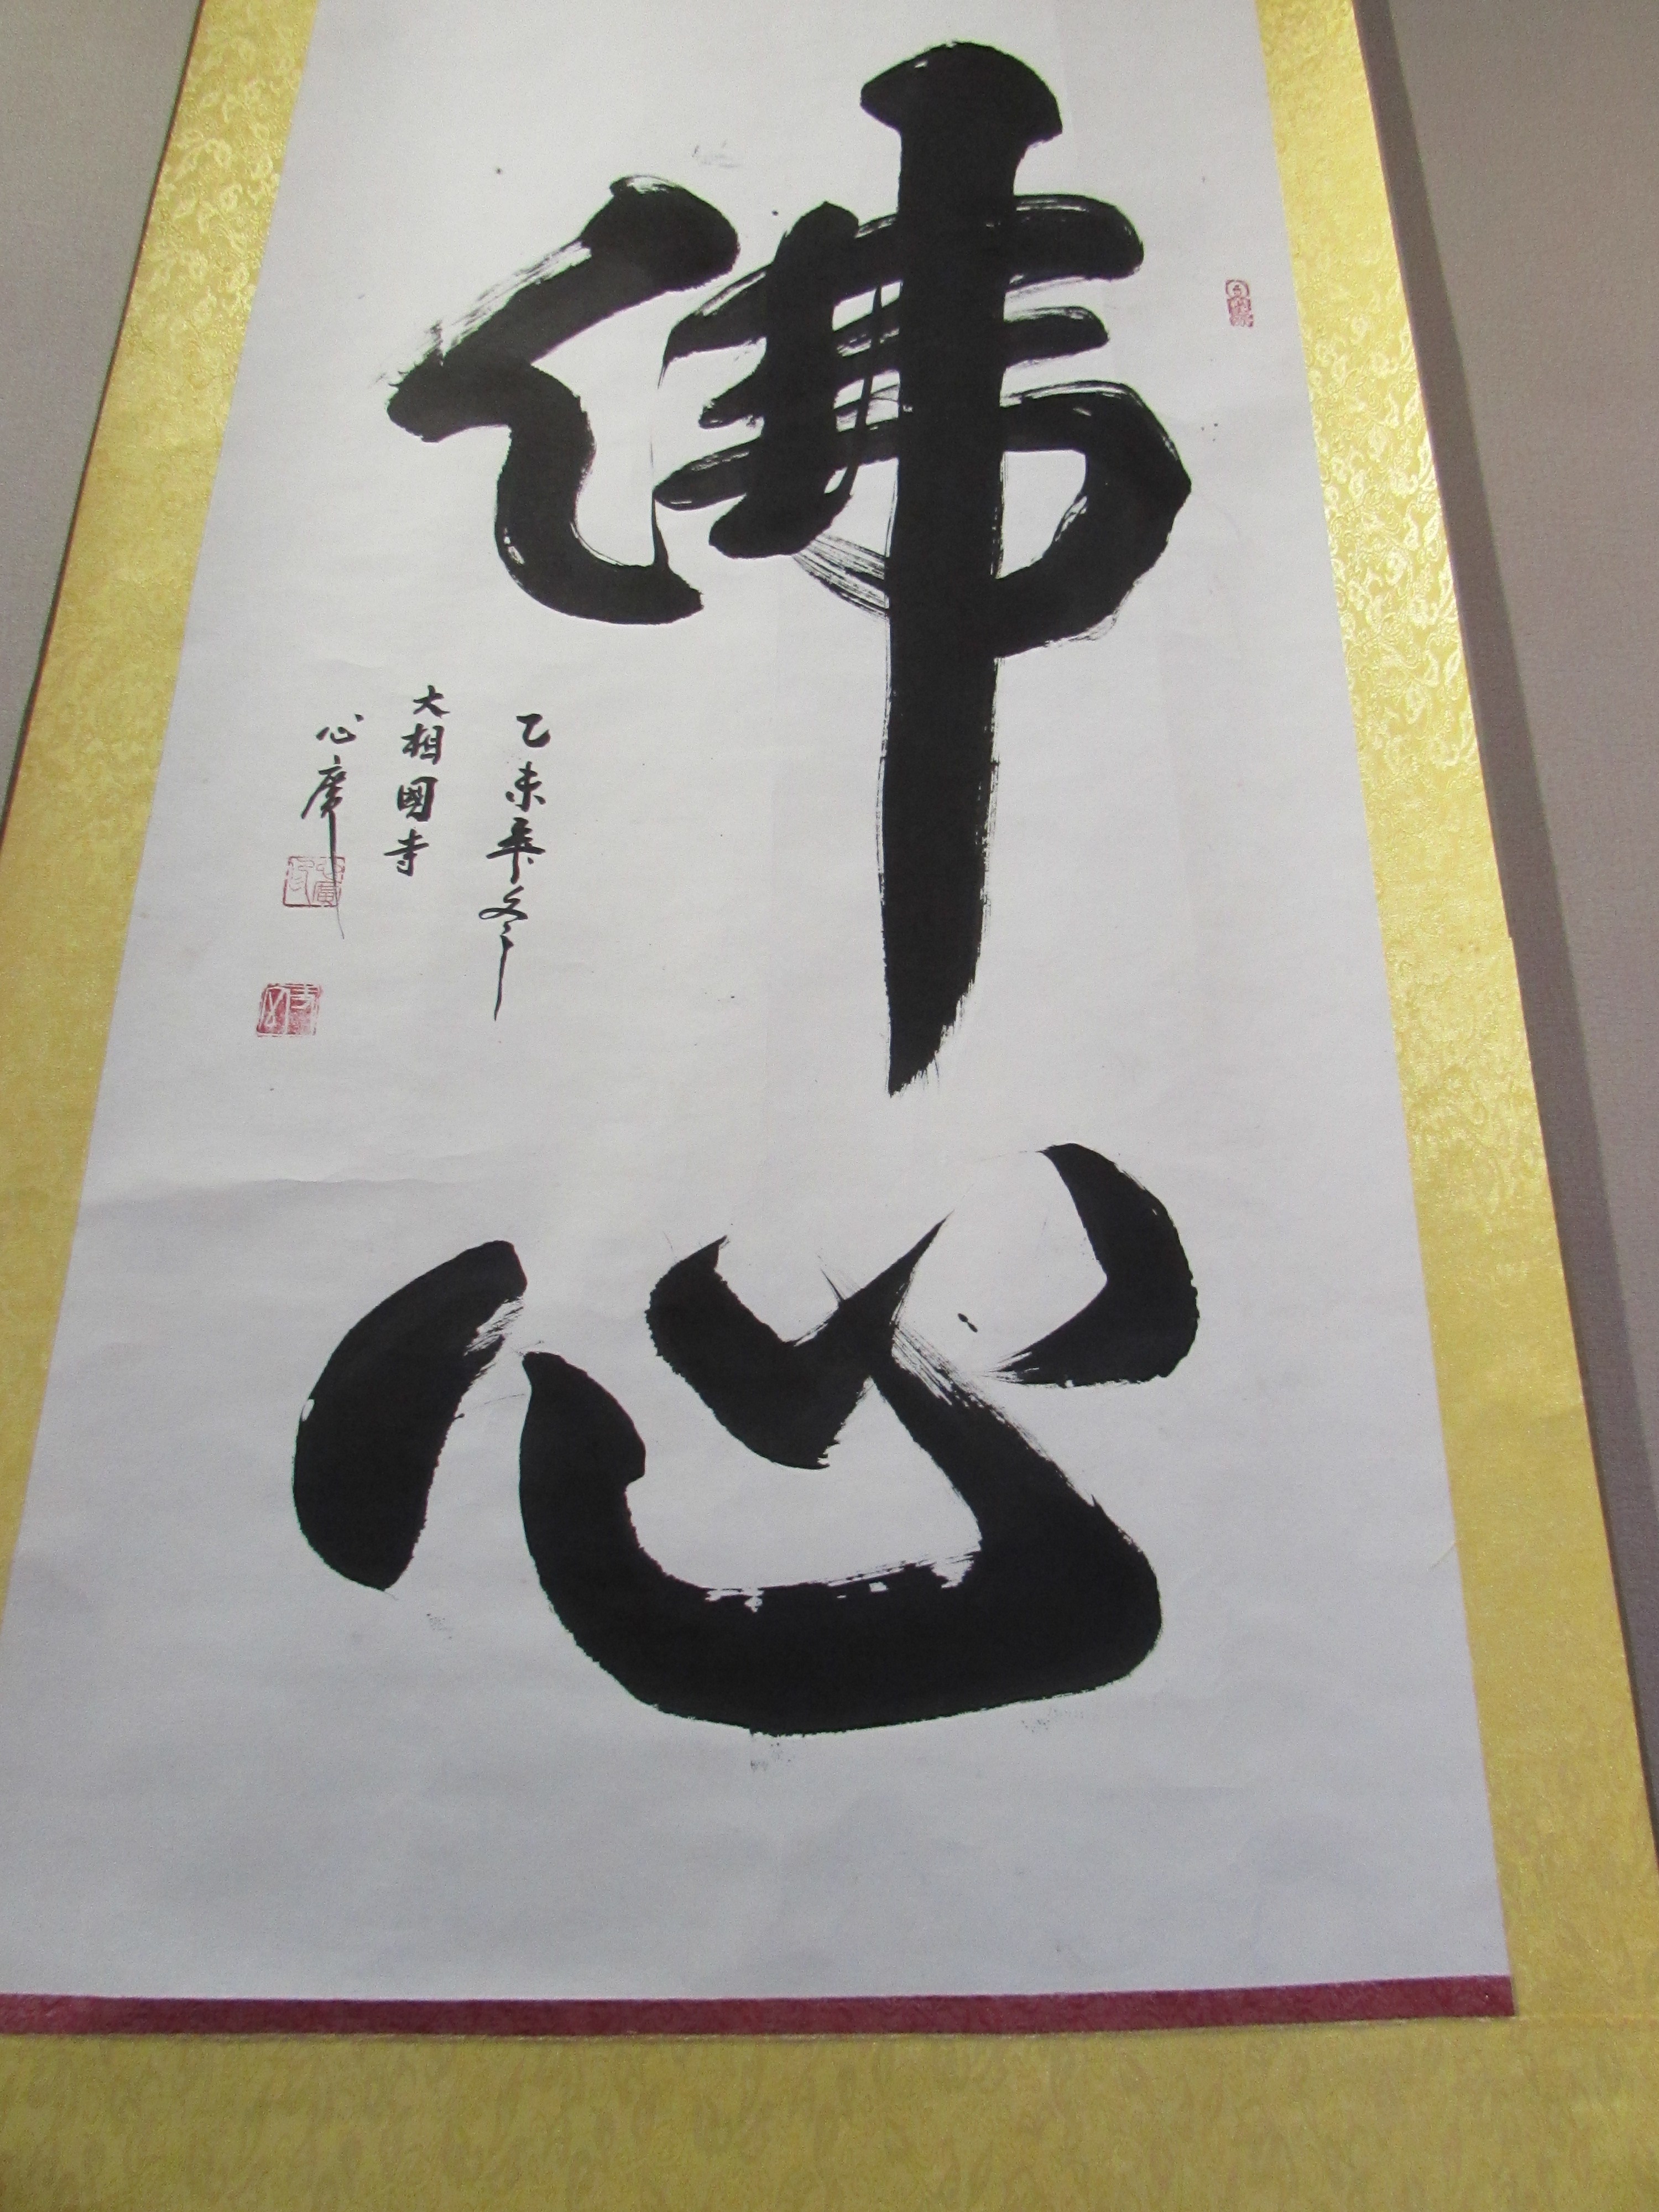 佛心
乙未年冬
大相國寺
心廣
心廣